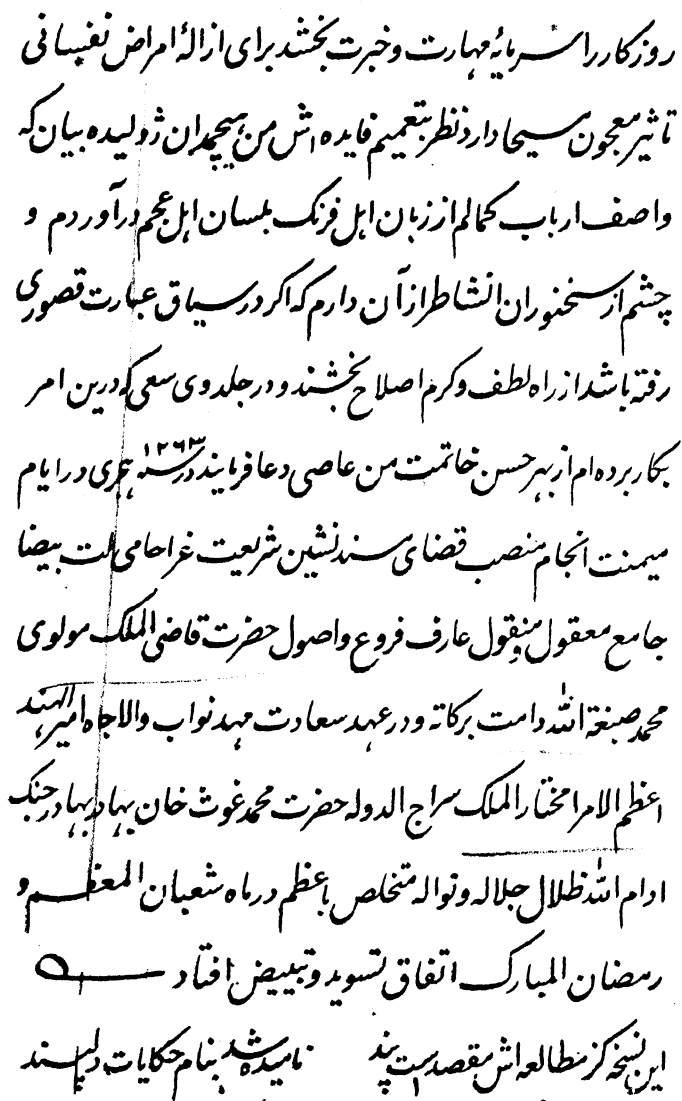 روزکار را سرمایهٔ مهارت و خبرت بخشد برای ازالهٔ امراض نفسانی
تاثیر معجون مسیحا دارد نظر بتعمیم فایده اش من هیچمدان ژولیده بیان که
واصف ارباب کمالم از زبان اهل فرنک بلسان اهل عجم درآوردم و
چشم از سخنوران انشا طراز آن دارم که اکر در سیاق عبارت قصوری
رفته باشد از راه لطف و کرم اصلاح بخشند و در جلدوی سعی که درین امر
بکار برده ام از بهر حسن خاتمت من عاصی دعا فرمایند در سنه ۱۲۶۳ هجری در ایام
میمنت انجام منصب قضای مسند نشین شریعت غرا حامی ملت بیضا
جامع معقول و منقول عارف فروع و اصول حضرت قاضی الملک مولوی
محمد صبغة الله دامت برکاته و در عهد سعادت مهد نواب والاجاه امیر الهند
اعظم الامرا مختار الملک سراج الدوله حضرت محمد غوث خان بهادر بهادر جنک
ادام الله ظلال جلاله و نواله متخلص باعظم در ماه شعبان المعظم و
رمضان المبارک اتفاق تسوید و تبییض افتاد
این نسخه کز مطالعه اش مقصد است پند نامیده شد بنام حکایات دلپسند